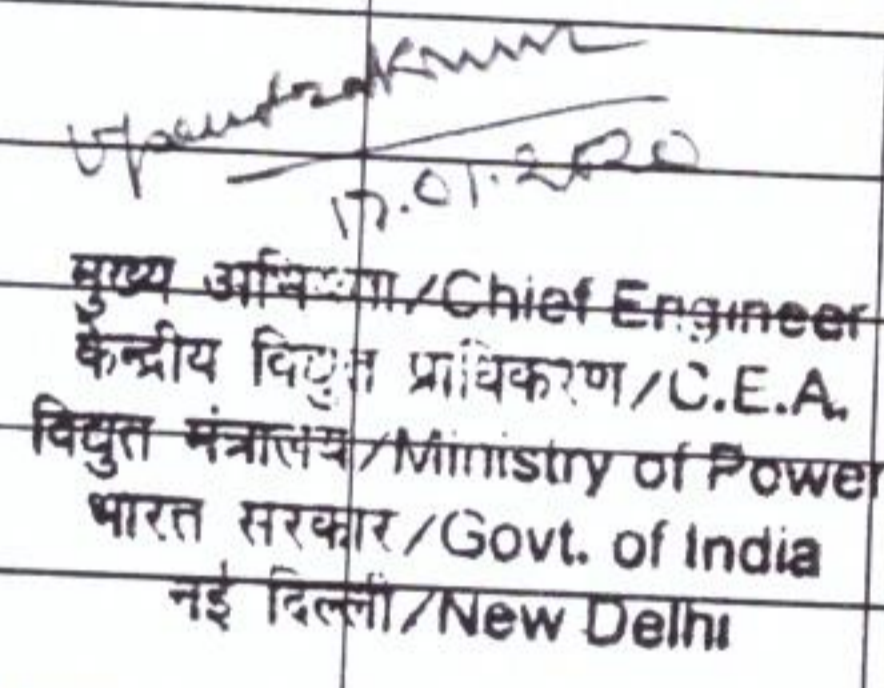 Upendra Kumar
17.01.2020
मुख्य अभियन्ता/Chief Engineer
केन्द्रीय विद्युत प्राधिकरण/C.E.A.
विद्युत मंत्रालय/Ministry of Power
भारत सरकार/Govt. of India
नई दिल्ली/New Delhi